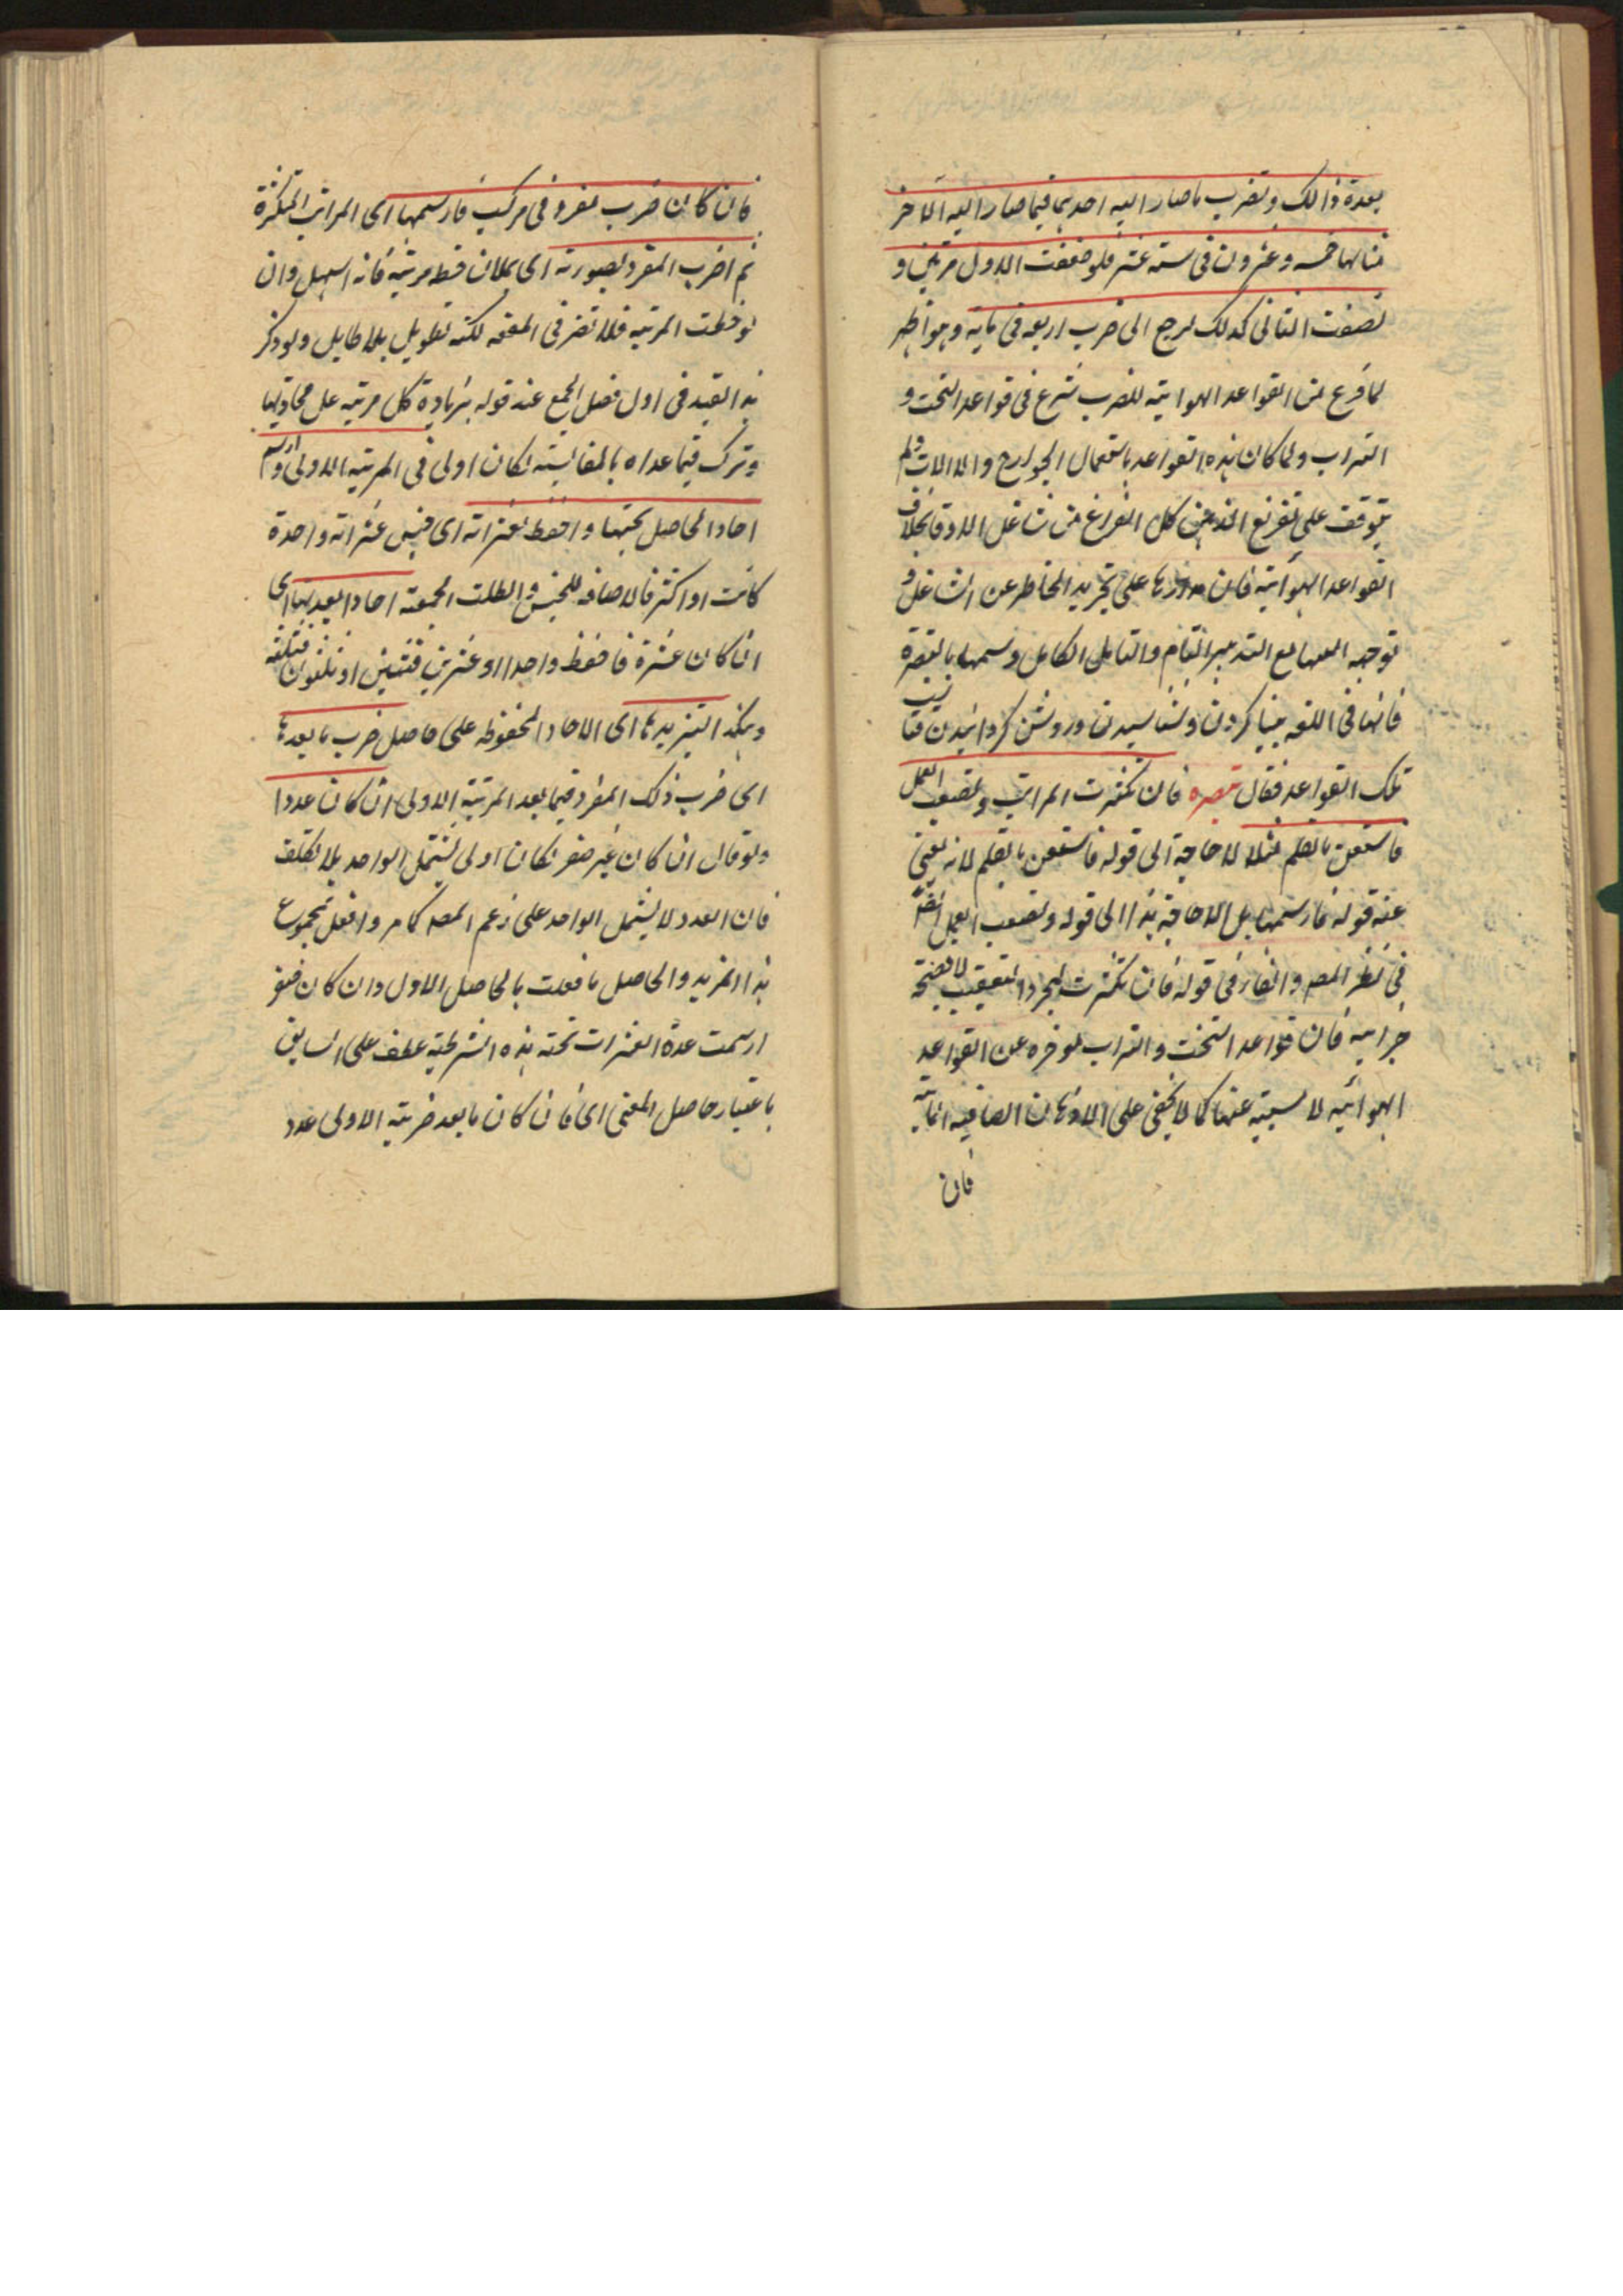 بعدة ذالك وتضرب ما صار اليه احدهما فيما صار اليه الآخر
مثالها خمسه وعشرون فى ستة عشر فلو ضعفت الاول مرتين و
نصفت الثانى كذلك لرجع الى ضرب اربعه فى مايه وهو اظهر
لما فرغ من القواعد الهوائية للضرب شرع فى قواعد التخت و
التراب ولما كان هذه القواعد باستعمال الجوارح والالات ولم
يتوقف على تفريغ الذهن كل الفراغ من شاغل الاوقات بخلاف
القواعد الهوائية فان مدارها على تجريد الخاطر عن الشاغل و
توجهه اليها مع التدبير التام والتامل الكامل وسمها بالتبصرة
فانها فى اللغه بينا كردن وشناسيدن وروشن كردانيدن
تلك القواعد فقال تبصره فان تكثرت المراتب وتصعب العمل
فاستعن بالقلم مثلا لا حاجة الى قوله فاستعن بالقلم لانه يغنى
عنه قوله فارسمها بل لا حاجة هذا الى قوله وتصعب العمل ايضا
فى نظر المصـ والفاء فى قوله فان تكثرت لمجرد التعقيب لا فصيحة
جزائيه فان قواعد التخت والتراب موخره عن القواعد
الهوائيه لا سببية عنها كما لا يخفى على الاذهان الصافيه
فان
فان كان ضرب مفرد فى مركب فارسمها اى المراتب المتكثرة
ثم اضرب المفرد بصورته اى بملان فقط مرتبة فانه اسهل وان
لوحظت المرتبه فلا تضر فى المعنى لكنه تطويل بلا طايل ولو ذكر
هذا القيد فى اول فصل الجمع عند قوله بزيادة كل مرتبه على محاذيها
وترك فيما عداه بالمقايسة لكان اولى فى المرتبه الاولى وارسم
احاد الحاصل تحتها واحفظ لعشراته اى جنس عشراته واحدة
كانت او اكثر فالاضافه للجنس وابطلت الجمعية احادا بعدتها اى
ان كان عشرة فاحفظ واحدا او عشرين فثنين او ثلثون فثلثه
وهكذا لتزيدها اى الاحاد المحفوظه على حاصل ضرب ما بعدها
اى ضرب ذلك المفرد فيما بعد المرتبة الاولى ان كان عددا
ولو قال ان كان غير صفر لكان اولى ليشمل الواحد بلا تكلف
فان العدد لا يشمل الواحد على زعم المصـ كما مر وافعل بمجموع
هذا المزيد والحاصل ما فعلت بالحاصل الاول وان كان صفرا
ارسمت عدة العشرات تحته هذه الشرطية عطف على السابق
باعتبار حاصل المعنى اى فان كان ما بعد مرتبه الاولى عدد